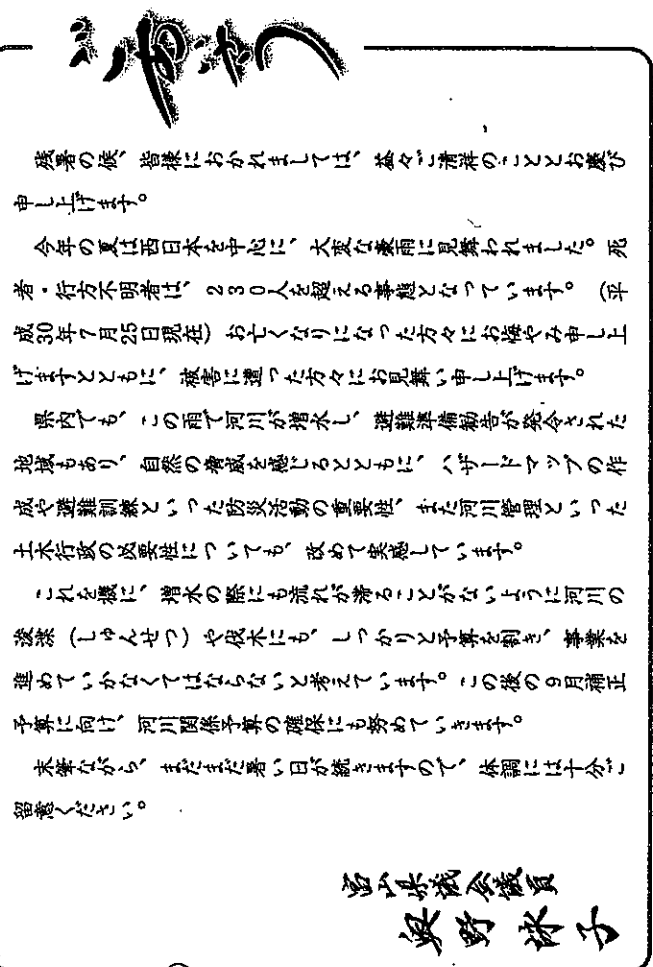 ごあいさつ
残暑の候、皆様におかれましては、益々ご清祥のこととお慶び
申し上げます。
今年の夏は西日本を中心に、大変な豪雨に見舞われました。死
者・行方不明者は、230人を超える事態となっています。（平
成30年7月25日現在）お亡くなりになった方々にお悔やみ申し上
げますとともに、被害に遭った方々にお見舞い申し上げます。
県内でも、この雨で河川が増水し、避難準備勧告が発令された
地域もあり、自然の脅威を感じるとともに、ハザードマップの作
成や避難訓練といった防災活動の重要性、また河川管理といった
土木行政の必要性についても、改めて実感しています。
これを機に、増水の際にも流れが滞ることがないように河川の
浚渫（しゅんせつ）や伐木にも、しっかりと予算を割き、事業を
進めていかなくてはならないと考えています。この後の9月補正
予算に向け、河川関係予算の確保にも努めていきます。
末筆ながら、まだまだ暑い日が続きますので、体調には十分ご
留意ください。
富山県議会議員
奥野詠子